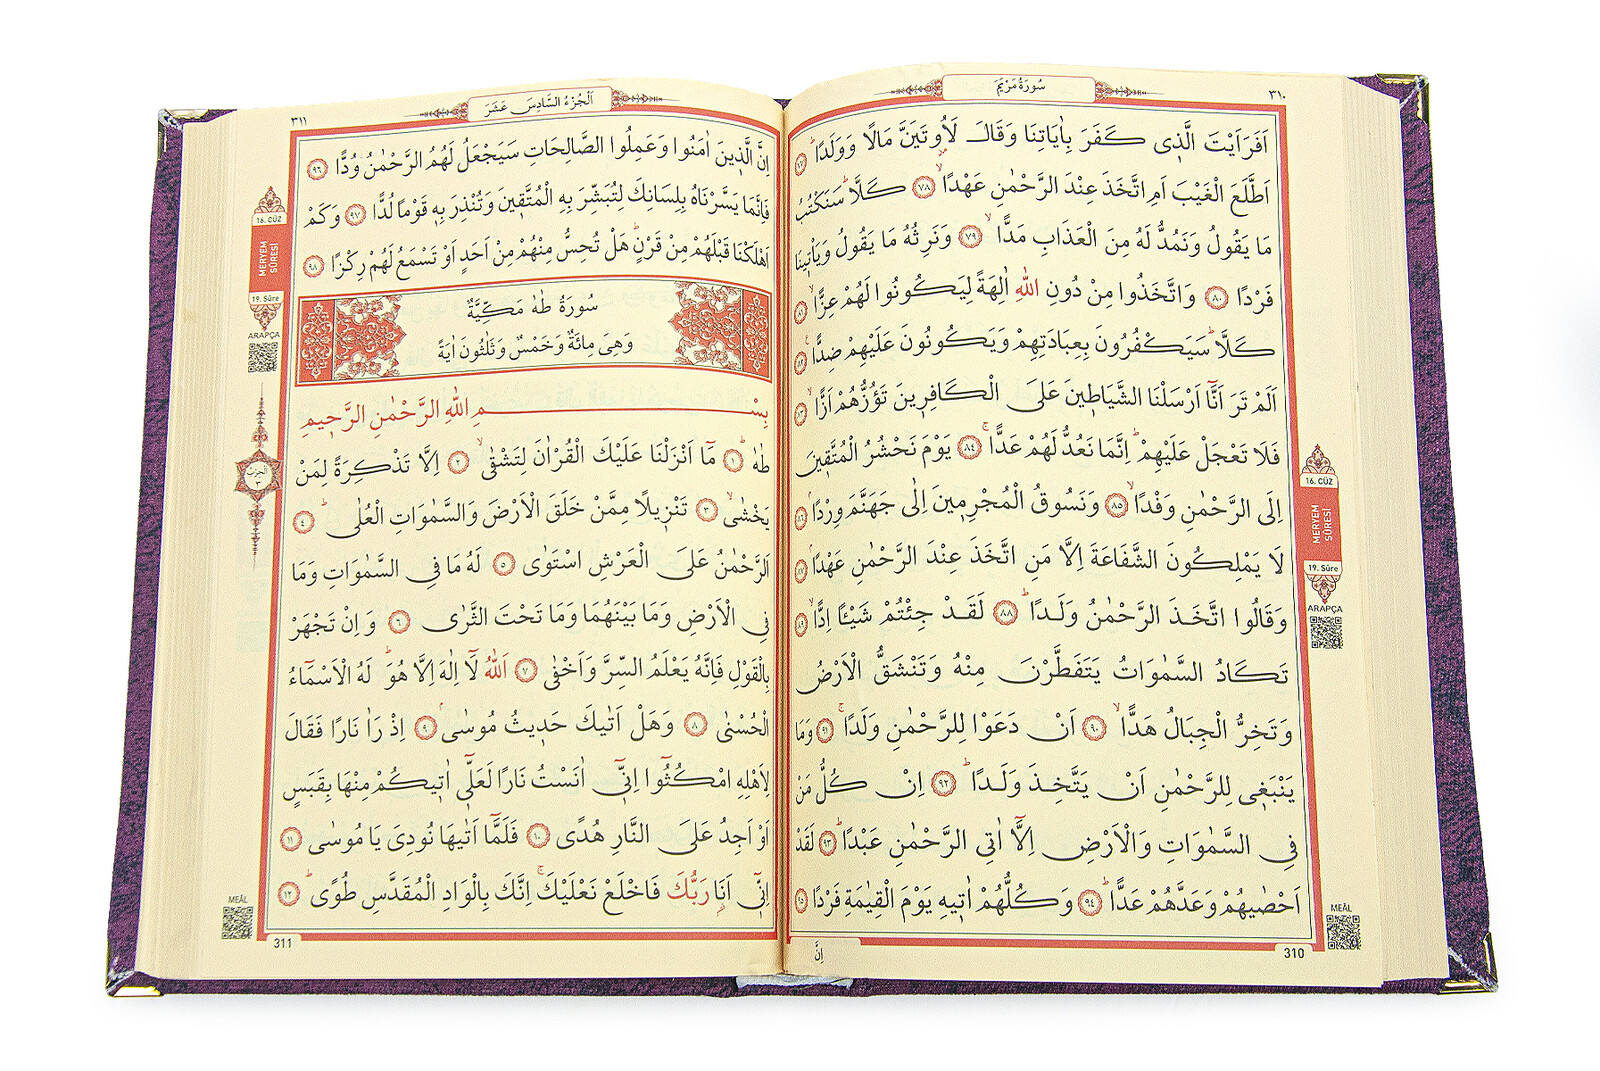 سُورَةُ مَرْيَمَ
٣١٠
اَفَرَاَيْتَ الَّذ۪ي كَفَرَ بِاٰيَاتِنَا وَقَالَ لَاُو۫تَيَنَّ مَالًا وَوَلَدًاۜ ﴿٧٧﴾
اَطَّلَعَ الْغَيْبَ اَمِ اتَّخَذَ عِنْدَ الرَّحْمٰنِ عَهْدًاۙ ﴿٧٨﴾ كَلَّاۜ سَنَكْتُبُ
مَا يَقُولُ وَنَمُدُّ لَهُ مِنَ الْعَذَابِ مَدًّاۙ ﴿٧٩﴾ وَنَرِثُهُ مَا يَقُولُ وَيَأْت۪ينَا
فَرْدًا ﴿٨٠﴾ وَاتَّخَذُوا مِنْ دُونِ اللّٰهِ اٰلِهَةً لِيَكُونُوا لَهُمْ عِزًّاۙ ﴿٨١﴾
كَلَّاۜ سَيَكْفُرُونَ بِعِبَادَتِهِمْ وَيَكُونُونَ عَلَيْهِمْ ضِدًّا۟ ﴿٨٢﴾
اَلَمْ تَرَ اَنَّٓا اَرْسَلْنَا الشَّيَاط۪ينَ عَلَى الْكَافِر۪ينَ تَؤُزُّهُمْ اَزًّاۙ ﴿٨٣﴾
فَلَا تَعْجَلْ عَلَيْهِمْۜ اِنَّمَا نَعُدُّ لَهُمْ عَدًّاۚ ﴿٨٤﴾ يَوْمَ نَحْشُرُ الْمُتَّق۪ينَ
اِلَى الرَّحْمٰنِ وَفْدًاۙ ﴿٨٥﴾ وَنَسُوقُ الْمُجْرِم۪ينَ اِلٰى جَهَنَّمَ وِرْدًاۢ ﴿٨٦﴾
لَا يَمْلِكُونَ الشَّفَاعَةَ اِلَّا مَنِ اتَّخَذَ عِنْدَ الرَّحْمٰنِ عَهْدًاۢ ﴿٨٧﴾
وَقَالُوا اتَّخَذَ الرَّحْمٰنُ وَلَدًاۜ ﴿٨٨﴾ لَقَدْ جِئْتُمْ شَيْـًٔا اِدًّاۙ ﴿٨٩﴾
تَكَادُ السَّمٰوَاتُ يَتَفَطَّرْنَ مِنْهُ وَتَنْشَقُّ الْاَرْضُ
وَتَخِرُّ الْجِبَالُ هَدًّاۙ ﴿٩٠﴾ اَنْ دَعَوْا لِلرَّحْمٰنِ وَلَدًاۚ ﴿٩١﴾ وَمَا
يَنْبَغ۪ي لِلرَّحْمٰنِ اَنْ يَتَّخِذَ وَلَدًاۜ ﴿٩٢﴾ اِنْ كُلُّ مَنْ
فِي السَّمٰوَاتِ وَالْاَرْضِ اِلَّٓا اٰتِي الرَّحْمٰنِ عَبْدًاۜ ﴿٩٣﴾ لَقَدْ
اَحْصٰيهُمْ وَعَدَّهُمْ عَدًّاۜ ﴿٩٤﴾ وَكُلُّهُمْ اٰت۪يهِ يَوْمَ الْقِيٰمَةِ فَرْدًا ﴿٩٥﴾
16. CÜZ
MERYEM
SÛRESİ
19. Sûre
ARAPÇA
MEÂL
310
اِنَّ
اَلْجُزْءُ السَّادِسَ عَشَرَ
٣١١
اِنَّ الَّذ۪ينَ اٰمَنُوا وَعَمِلُوا الصَّالِحَاتِ سَيَجْعَلُ لَهُمُ الرَّحْمٰنُ وُدًّا ﴿٩٦﴾
فَاِنَّمَا يَسَّرْنَاهُ بِلِسَانِكَ لِتُبَشِّرَ بِهِ الْمُتَّق۪ينَ وَتُنْذِرَ بِه۪ قَوْمًا لُدًّا ﴿٩٧﴾ وَكَمْ
اَهْلَكْنَا قَبْلَهُمْ مِنْ قَرْنٍۜ هَلْ تُحِسُّ مِنْهُمْ مِنْ اَحَدٍ اَوْ تَسْمَعُ لَهُمْ رِكْزًا ﴿٩٨﴾
سُورَةُ طٰهٰ مَكِّيَّةٌ
وَهِيَ مِائَةٌ وَخَمْسٌ وَثَلٰثُونَ اٰيَةً
بِسْمِ اللّٰهِ الرَّحْمٰنِ الرَّح۪يمِ
طٰهٰۜ ﴿١﴾ مَٓا اَنْزَلْنَا عَلَيْكَ الْقُرْاٰنَ لِتَشْقٰىۙ ﴿٢﴾ اِلَّا تَذْكِرَةً لِمَنْ
يَخْشٰىۙ ﴿٣﴾ تَنْز۪يلًا مِمَّنْ خَلَقَ الْاَرْضَ وَالسَّمٰوَاتِ الْعُلٰىۜ ﴿٤﴾
اَلرَّحْمٰنُ عَلَى الْعَرْشِ اسْتَوٰى ﴿٥﴾ لَهُ مَا فِي السَّمٰوَاتِ وَمَا
فِي الْاَرْضِ وَمَا بَيْنَهُمَا وَمَا تَحْتَ الثَّرٰى ﴿٦﴾ وَاِنْ تَجْهَرْ
بِالْقَوْلِ فَاِنَّهُ يَعْلَمُ السِّرَّ وَاَخْفٰى ﴿٧﴾ اَللّٰهُ لَٓا اِلٰهَ اِلَّا هُوَۜ لَهُ الْاَسْمَٓاءُ
الْحُسْنٰى ﴿٨﴾ وَهَلْ اَتٰيكَ حَد۪يثُ مُوسٰىۢ ﴿٩﴾ اِذْ رَاٰ نَارًا فَقَالَ
لِاَهْلِهِ امْكُثُٓوا اِنّ۪ٓي اٰنَسْتُ نَارًا لَعَلّ۪ٓي اٰت۪يكُمْ مِنْهَا بِقَبَسٍ
اَوْ اَجِدُ عَلَى النَّارِ هُدًى ﴿١٠﴾ فَلَمَّٓا اَتٰيهَا نُودِيَ يَا مُوسٰى ﴿١١﴾
اِنّ۪ٓي اَنَا۬ رَبُّكَ فَاخْلَعْ نَعْلَيْكَۚ اِنَّكَ بِالْوَادِ الْمُقَدَّسِ طُوًىۜ ﴿١٢﴾
16. CÜZ
MERYEM
SÛRESİ
19. Sûre
ARAPÇA
MEÂL
311